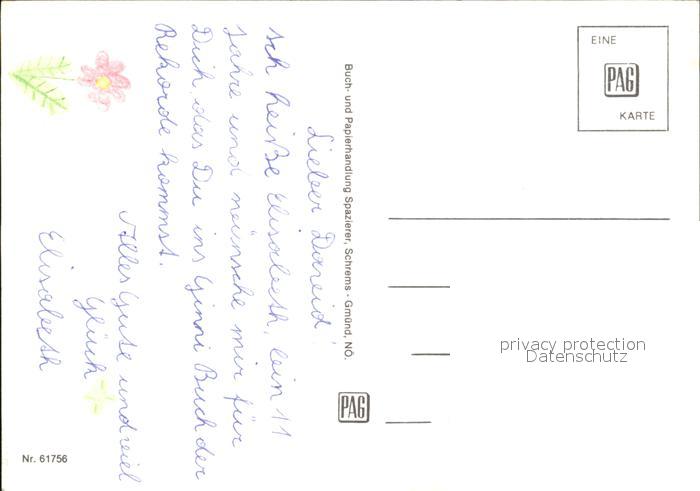 Lieber David!
Ich heiße Elisabeth, bin 11
Jahre und wünsche mir für
Dich das Du ins Ginni Buch der
Rekorde kommst.
Alles Gute und viel
Glück
Elisabeth
Buch- und Papierhandlung Spazierer, Schrems - Gmünd, NÖ.
EINE
PAG
KARTE
privacy protection
Datenschutz
PAG
Nr. 61756